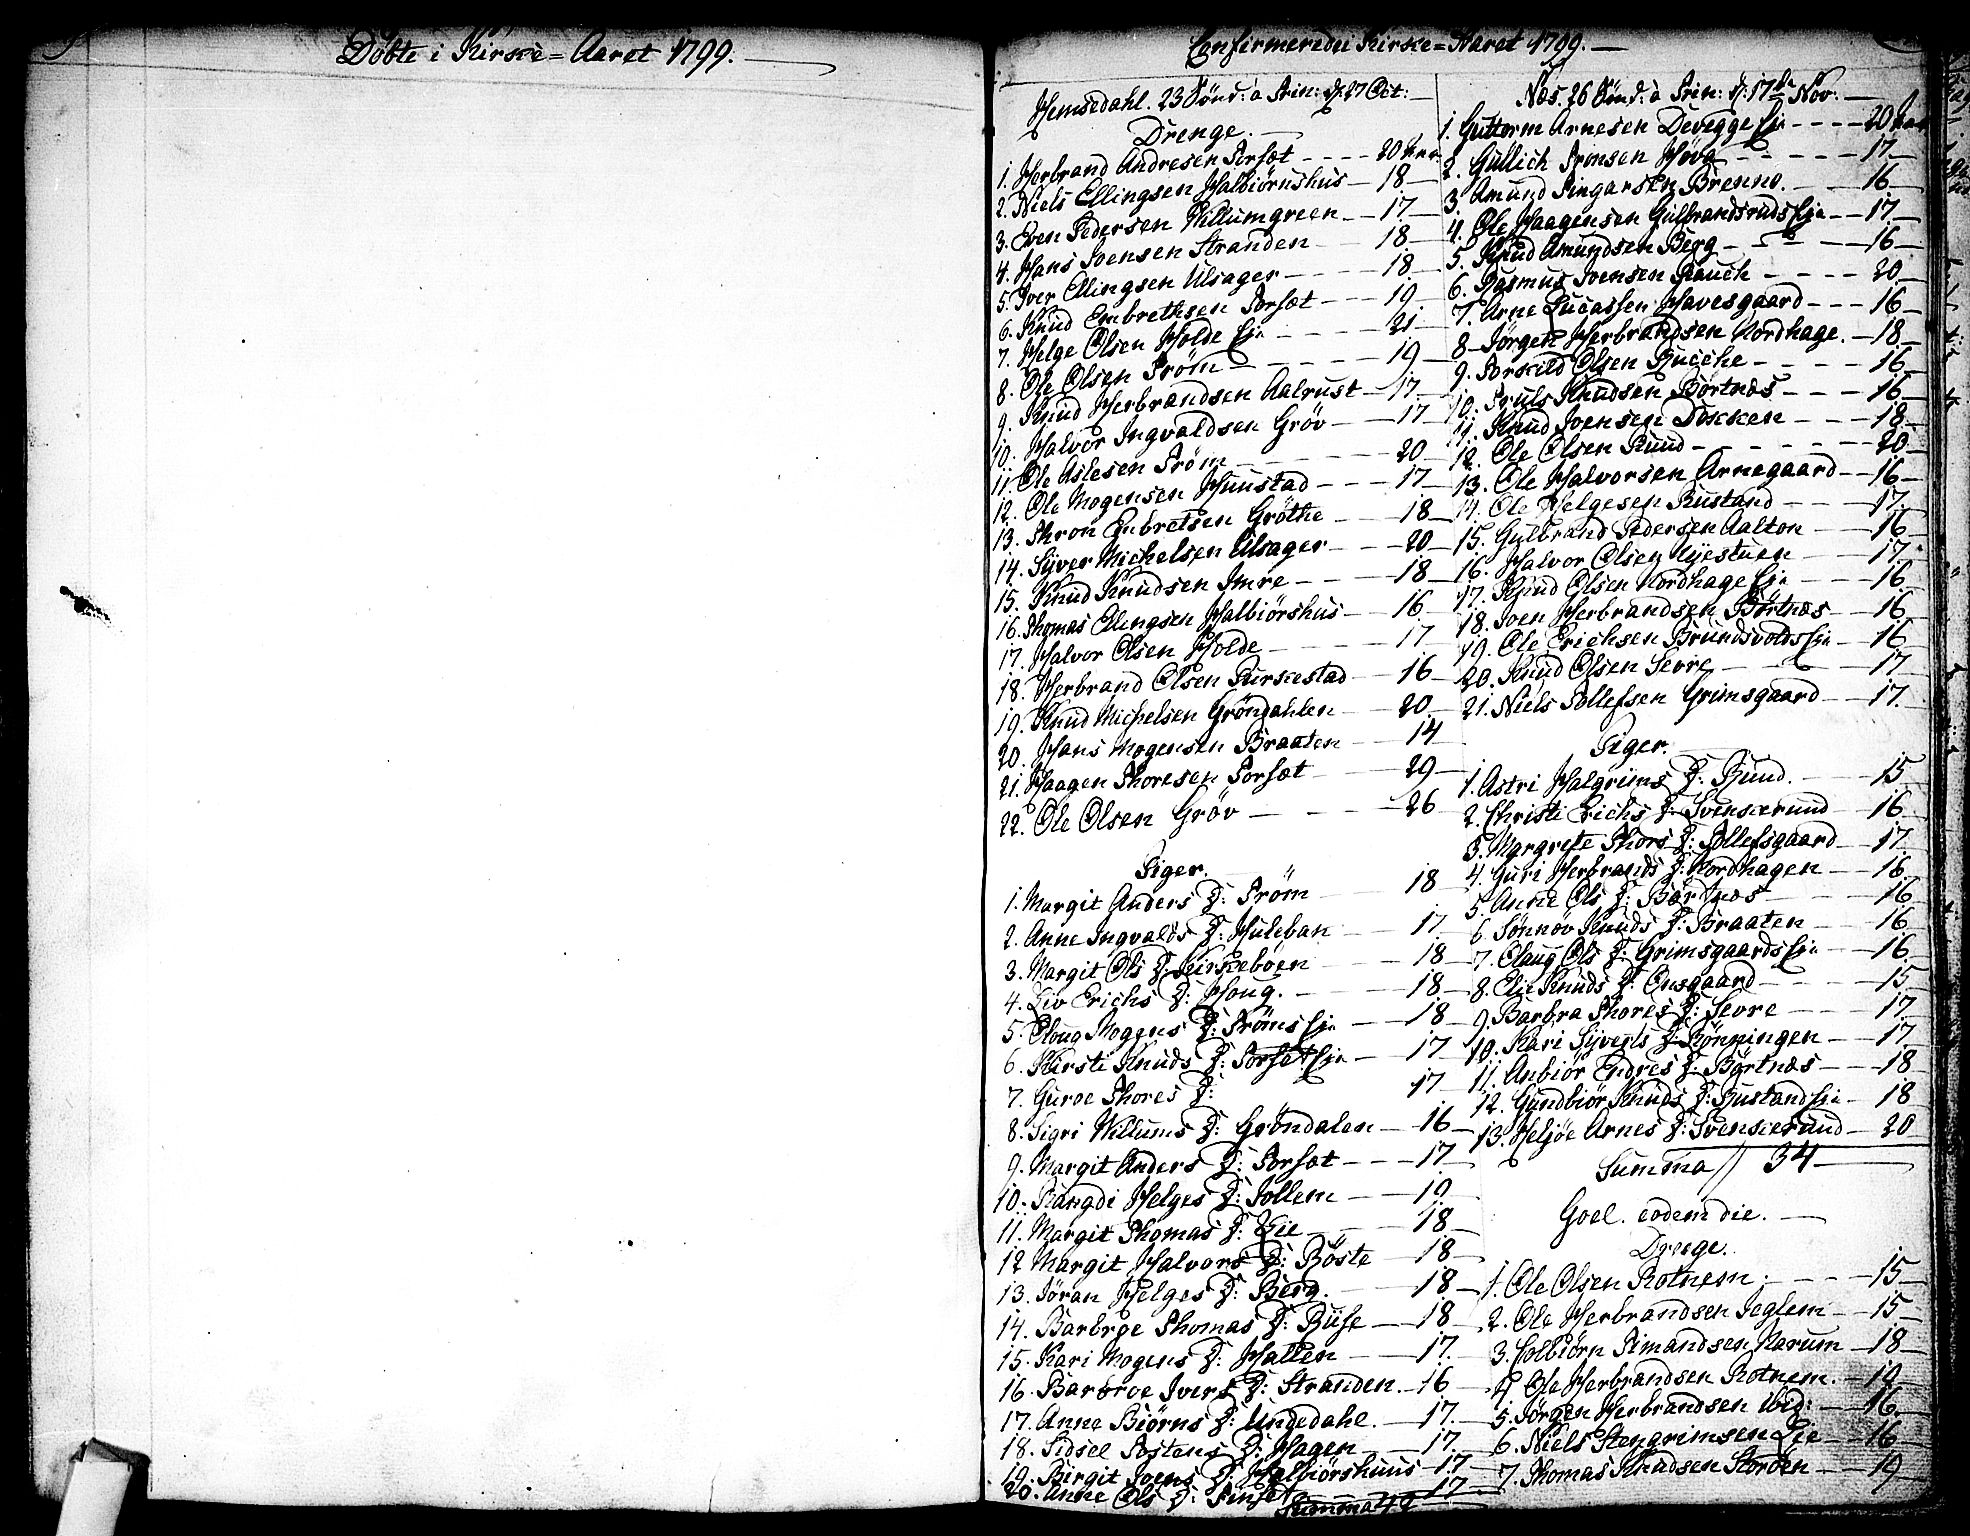 Döbte i Kirke=Aaret 1799.
Confirmerede i Kirke=Aaret 1799.
Hemsedahl. 23 Sönd: a Trin: d. 27 Oct:
Drenge.
1. Herbrand Andresen Torset 20 Aar
2. Niels Ellingsen Halbiörnshus 18
3. Even Pedersen Villumgreen 17
4. Hans Joensen Stranden 18
5. Iver Ellingsen Ulsager 18
6. Knud Embrethsen Torsæt 19
7. Helge Olsen Holde Eie 21
8. Ole Olsen Tröm 19
9. Knud Herbrandsen Aalrust 17
10. Halvor Ingvaldsen Gröv 17
11. Ole Aslesen Tröm 20
12. Ole Mogensen Huustad 17
13. Thron Enbretsen Gröthe 18
14. Syver Michelsen Ulsager 20
15. Knud Knudsen Imre 18
16. Thomas Ellingsen Halbiörshus 16
17. Halvor Olsen Holde 17
18. Herbrand Olsen Kirkestad 16
19. Knud Michelsen Gröndahlen 20
20. Hans Mogensen Braaten 14
21. Haagen Thoresen Torsæt 29
22. Ole Olsen Gröv 26
Piger.
1. Margit Anders D: Tröm 18
2. Anne Ingvalds D: Huleban 17
3. Margit Ols D: Kirkeböen 18
4. Liv Erichs D: Houg. 18
5. Oloug Mogens D: Tröms Eie 18
6. Kirsti Knuds D: Torset Eie 17
7. Guroe Thores D: 17
8. Sigri Willums D: Gröndalen 16
9. Margit Anders D: Torsæt 17
10. Rangdi Helges D: Tollem 19
11. Margit Thomas D: Lie 18
12 Margit Halvors D: Böste 18
13. Jöran Helges D: Berg. 18
14. Barbroe Thomas D: Buse 18
15. Kari Mogens D: Hallen 17
16. Barbroe Ivers D: Stranden. 16
17. Anne Biörns D: Undedahl. 17
18. Sidsel Tostens D: Hagen 17
19. Birgit Joens D: Halbiörshuus 17
20. Anne Ols D: 17
Summa 42
Næs. 26 Sönd: a Trin: d: 17de Nov.
1. Guttorm Arnesen Devegge Eie 20 Aar
2. Gullich Trinsen Hövg 17
3. Amund Singarsen Brenno. 16
4. Ole Haagensen Gulbrandsruds Eie 17
5. Knud Amundsen Berg 16
6. Rasmus Joensen Rauch 20
7. Arne Lucassen Havesgaard 16
8 Jörgen Herbrandsen Nordhage. 18
9. Torkild Olsen Bucche 16
10. Truls Knudsen Börtnæs 16
11. Knud Joensen Dokken 18
12. Ole Olsen Ruud 20
13. Ole Halvorsen Arnegaard 16
14. Ole Helgesen Rustand 17
15. Gulbrand Pedersen Aalton 16
16. Halvor Olsen Miestuen 17
17. Knud Olsen Nordhage Eie 16
18. Joen Herbrandsen Börtnæs 16
19. Ole Erichsen Brundsvolds Eie 16
20. Knud Olsen Sevre 17
21. Niels Tollefsen Grimsgaard 17
Piger.
1. Astri Halgrims D: Ruud. 15
2. Christi Erichs D: Svenkerud 16
3. Margrete Thors D: Tollefsgaard 17
4. Guri Herbrands D: Nordhagen 16
5. Anne Ols D: Börtnæs 16
6. Sönnöv Knuds D: Braaten 16
7. Olaug Ols D: Grimsgaards Eie 16
8. Elie Knuds D: Onsgaard 15
9. Barbra Thores D: Sevre 17
10. Kari Syverts D: Rönningen 17
11. Anbiör Endres D: Börtnæs 18
12. Gundbiör Knuds D: Rustand Eie 18
13. Heljöe Arnes D: Svenkerud 20
Summa // 34
Goel. eodem die.
Drenge.
1. Ole Olsen Rotnem 15
2. Ole Herbrandsen Jeglem 15
3. Colbiörn Simandsen Narum 18
4 Ole Herbrandsen Rotnem. 19
5. Jörgen Herbrandsen ibid: 16
6. Niels Stengrimsen Lie 16
7. Thomas Knudsen Storden 19